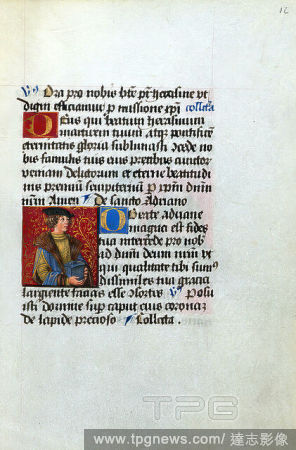 12
Ora pro nobis bte pr herasme vt
digni efficiamur p missione xpi collecta
Deus qui beatum herasmum
martirem tuum, atqz pontificem
eternitatis gloria sublimasti Cōcede no
bis famulis tuis eius precibus cunctor
veniam delictorum et eterne beatitudi
nis premium sempiternum p xpm dnm
nrm Amen De sancto Adriano
O Berte adriane
magna est fides
tua intercede pro nob
ad dum deum nrm vt
qui qualitate tibi sum9
dissimiles tua gracia
largiente facias esse
Posu
isti domine sup caput eius coronaz
de lapide precioso Collecta .
TPG
www.tpgnews.com / 達志影像